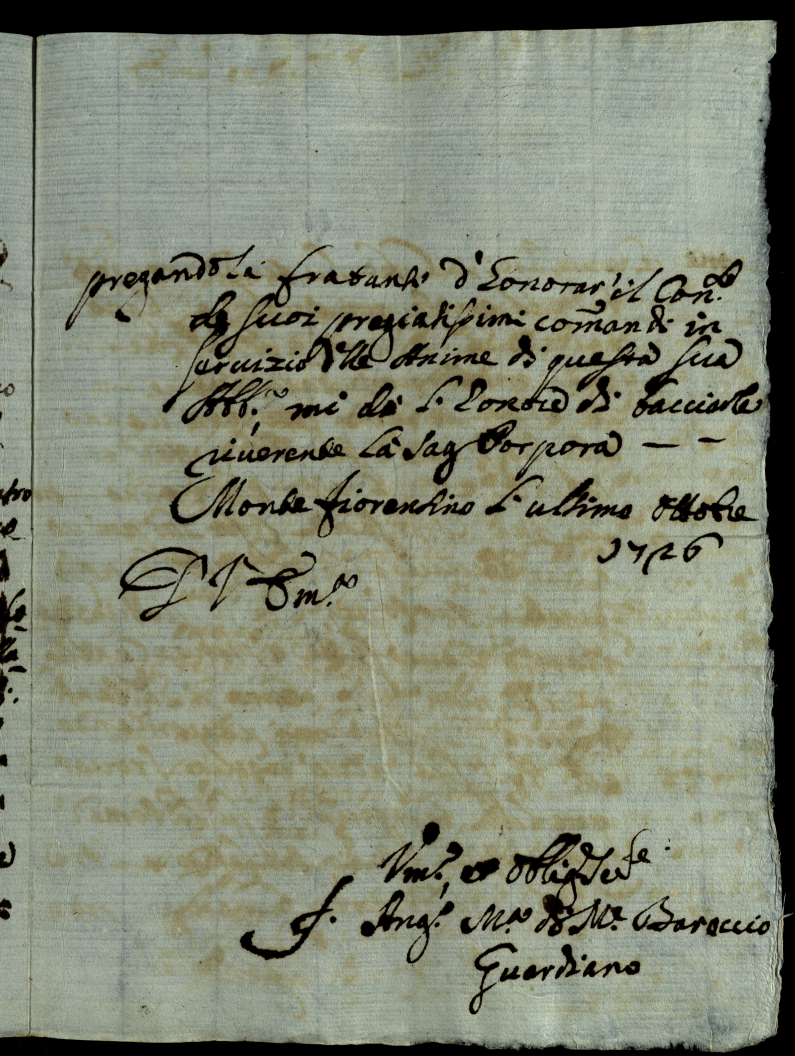 pregandola fratanto d'honorar' il Con.to
de suoi pregiatissimi comandi in
servizio delle Anime di questa sua
Abb.a mi do l'honore di bacciarle
riverente la Sag Porpora — —
Monte fiorentino l'ultimo Ottobre
1726
D V Em.a
Um.o, et Obblig.o Se.re
f. Ang.o M.a da M.e Baroccio
Guardiano